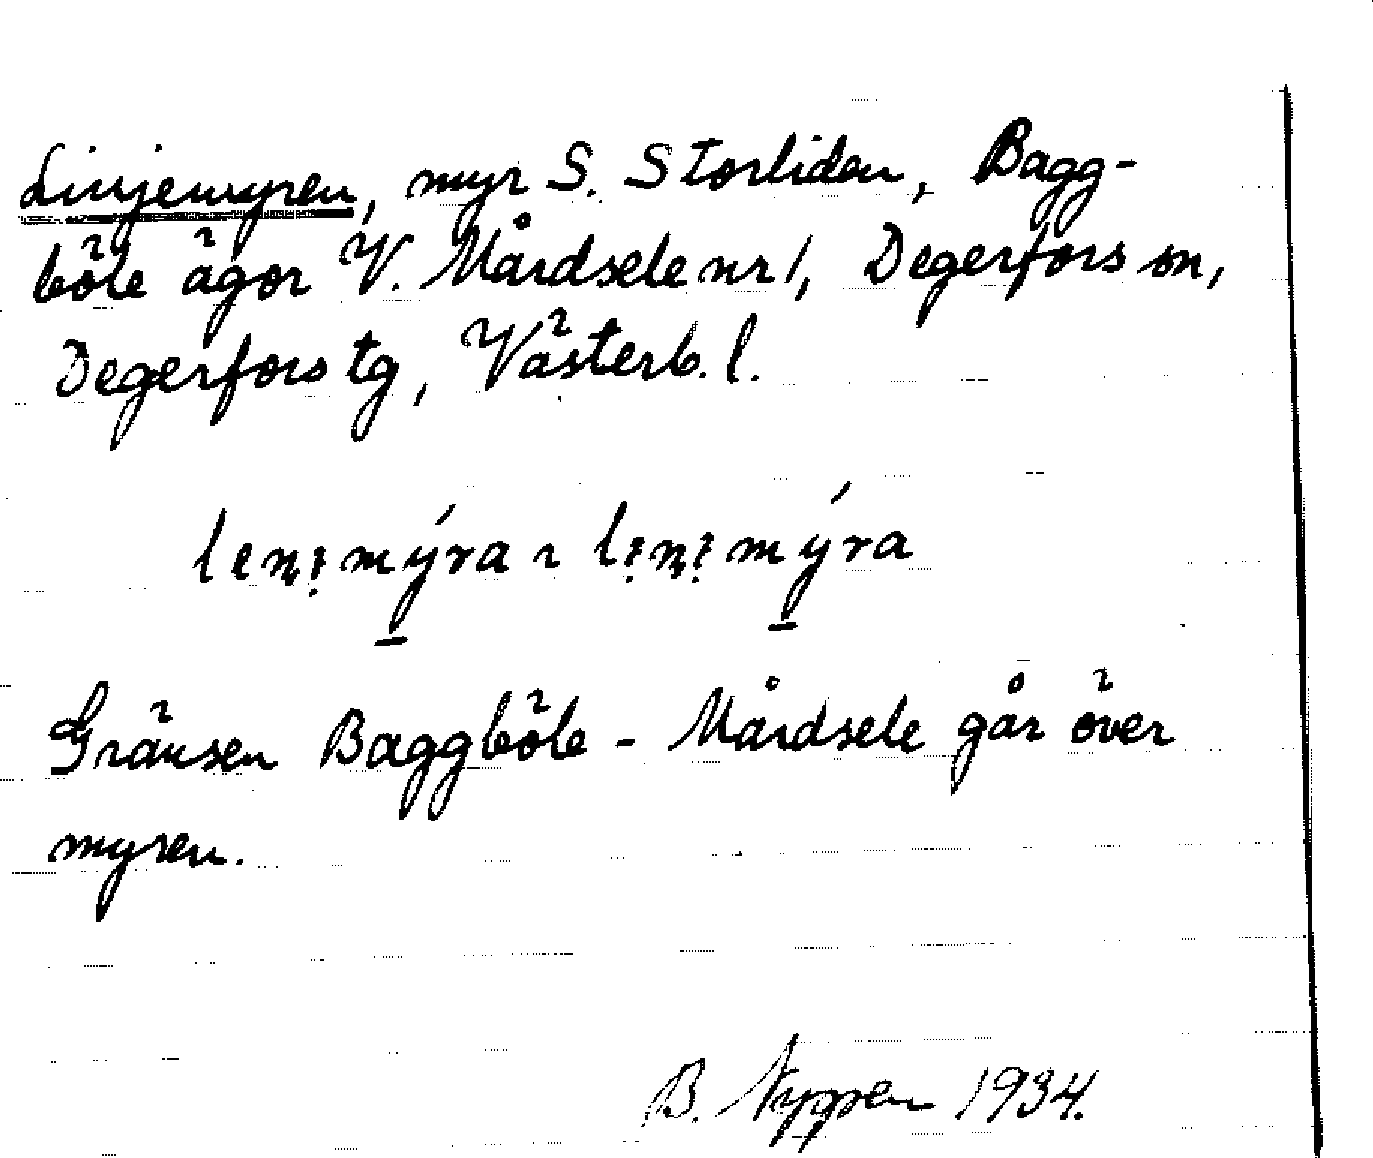 Linjemyren, myr S. Storliden, Bagg-
böle ägor V. Mårdsele nr 1, Degerfors sn,
Degerfors tg, Västerb. l.
mýra mýra
Gränsen Baggböle - Mårdsele går över
myren.
B. 1934.